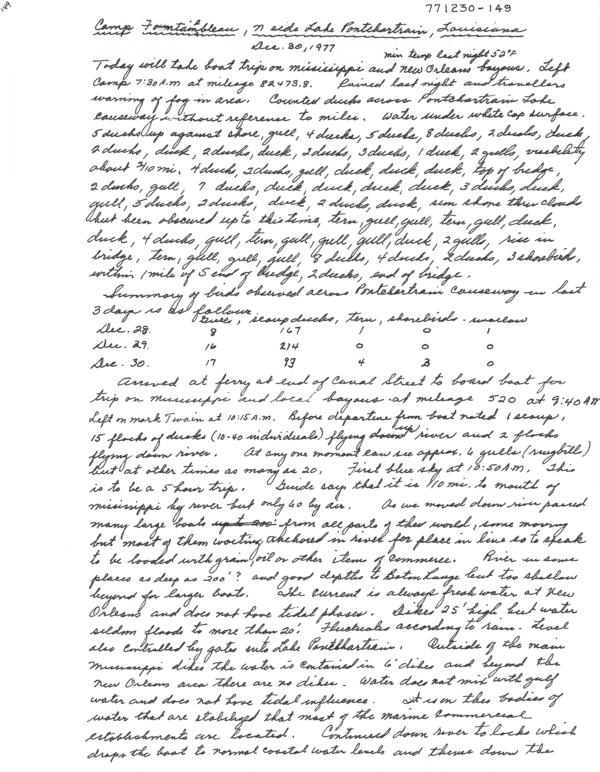 149
771230-149
Camp Fountainbleau, N side Lake Pontchartrain, Louisiana
Dec. 30, 1977
min temp last night 52°F
Today will take boat trip on mississippi and New Orleans bayous. Left
Camp 7:30 A.M at mileage 82473.8. Rained last night and travellers
warning of fog in area. Counted ducks across Pontchartrain Lake
causeway without reference to miles. Water under white cap surface.
5 ducks up against shore, gull, 4 ducks, 5 ducks, 8 ducks, 2 ducks, duck,
2 ducks, duck, 2 ducks, duck, 2 ducks, 3 ducks, 1 duck, 2 gulls, visibility
about 3/10 mi. 4 ducks, 2 ducks, gull, duck, duck, duck, top of bridge,
2 ducks, gull, 7 ducks, duck, duck, duck, duck, 3 ducks, duck,
gull, 5 ducks, 2 ducks, duck, 2 ducks, duck, sun shone thru clouds
but been obscured up to this time, tern, gull, gull, tern, gull, duck,
duck, 4 ducks, gull, tern, gull, gull, gull, duck, 2 gulls, rise in
bridge, tern, gull, gull, gull, 8 ducks, 4 ducks, 2 ducks, 3 shorebirds,
within 1 mile of S end of bridge, 2 ducks, end of bridge.
Summary of birds observed across Pontchartrain Causeway in last
3 days is as follows
Gulls, scaup ducks, tern, shorebirds - swallow
Dec. 28. 8 167 1 0 1
Dec. 29. 16 214 0 0 0
Dec. 30. 17 93 4 3 0
Arrived at ferry at end of Canal Street to board boat for
trip on Mississippi and local bayous at mileage 520 at 9:40 AM
Left on Mark Twain at 10:15 A.M. Before departure from boat noted 1 scaup,
15 flocks of ducks (10-40 individuals) flying down up river and 2 flocks
flying down river. At any one moment can see approx. 6 gulls (ringbills)
but at other times as many as 20. First blue sky at 10:50 A.M. This
is to be a 5 hour trip. Guide says that it is 110 mi. to mouth of
mississippi by river but only 60 by air. As we moved down river passed
many large boats up to 200' from all parts of the world, some moving
but most of them waiting anchored in river for place in line so to speak
to be loaded with grain, oil or other items of commerce. River in some
places as deep as 200'? and good depths to Baton Rouge but too shallow
beyond for larger boats. The current is always fresh water at New
Orleans and does not have tidal phases. Dikes 25' high but water
seldom floods to more than 20'. Fluctuates according to rain. Level
also controlled by gates into Lake Pontchartrain. Outside of the main
Mississippi dikes the water is contained in 6' dikes and beyond the
New Orleans area there are no dikes. Water does not mix with gulf
water and does not have tidal influence. It is on these bodies of
water that are stabilized that most of the marine commercial
establishments are located. Continued down river to locks which
drops the boat to normal coastal water levels and thence down the